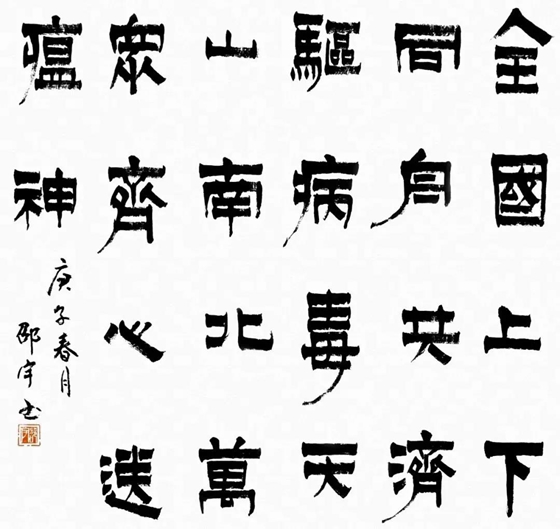 全國上下
同舟共濟
驅病毒天
山南北萬
眾齊心送
瘟神
庚子春月
邵宇书